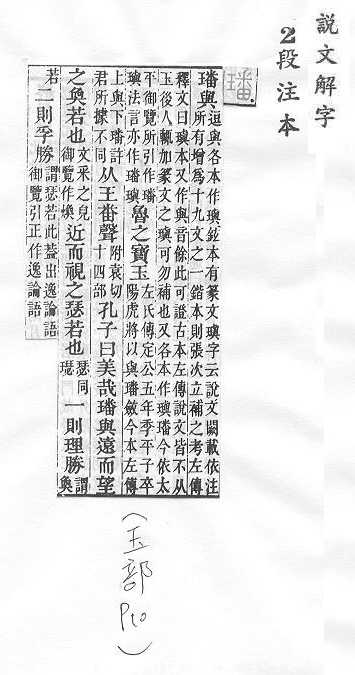 說文解字
2段注本
璠
璠與逗與各本作璵鉉本有篆文璵字云說文闕載依注所有增爲十九文之一鍇本則張次立補之考左傳
釋文曰璵本又作與音餘此可證古本左傳說文皆不从玉後人輒加篆文之璵可勿補也又各本作璵璠今依太
平御覽所引作璠璵法言亦作璠璵魯之寶玉左氏傳定公五年季平子卒陽虎將以與璠斂今本左傳
上與下璠許君所據不同从王番聲附袁切十四部孔子曰美哉璠與遠而望
之奐若也文采之皃御覽作煥近而視之瑟若也瑟同璱一則理勝謂奐
若二則孚勝謂瑟若此蓋出逸論語御覽引正作逸論語
(玉部 P10)